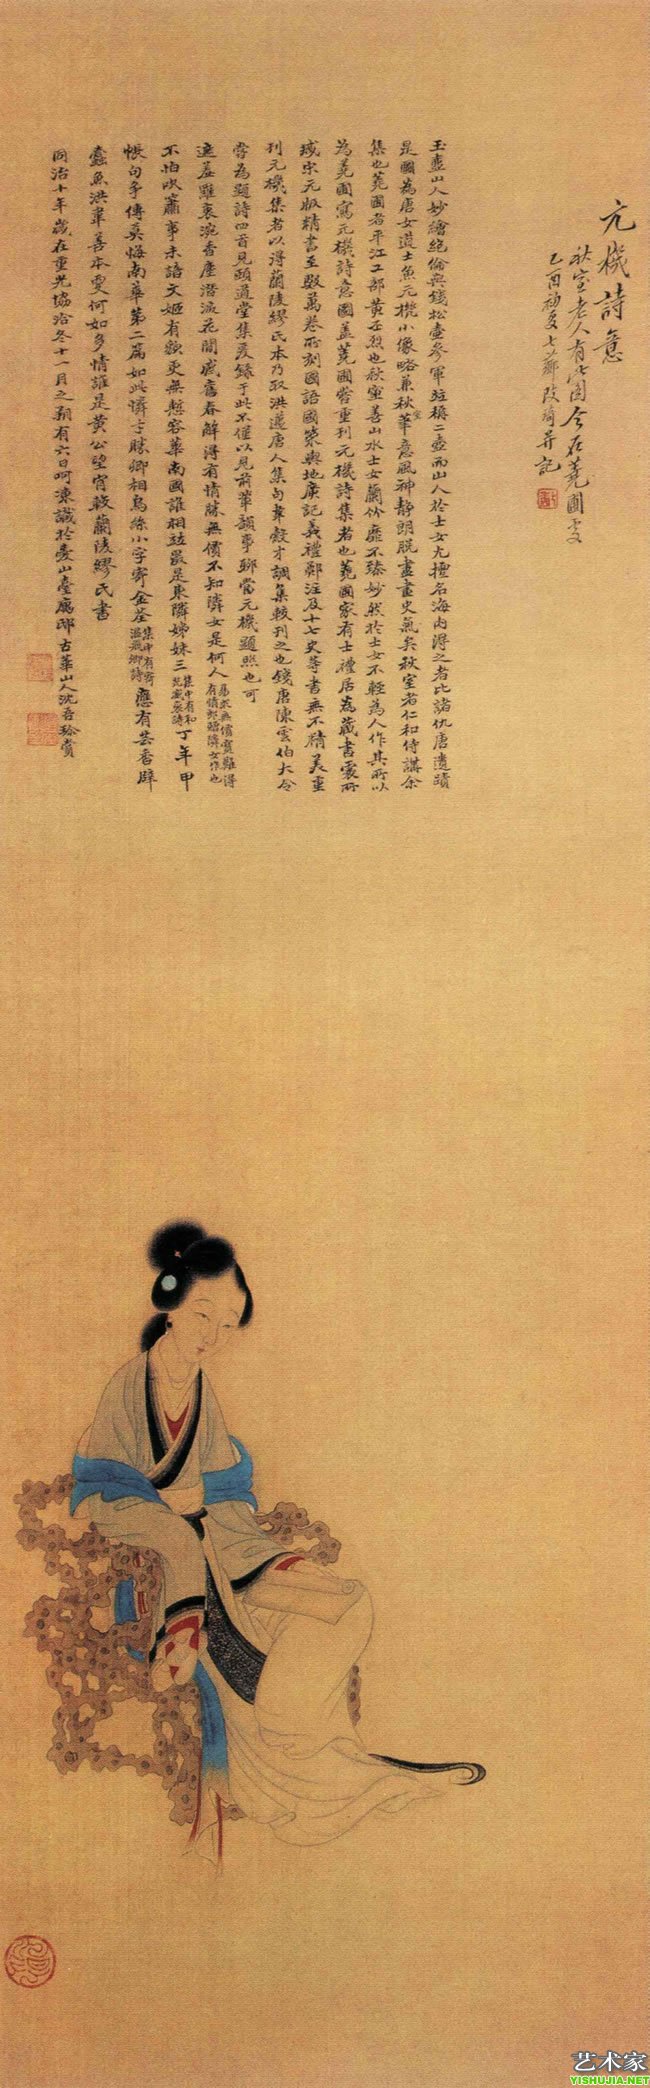 元機詩意
秋室老人有此圖今在蕘圃處
乙酉初夏七薌改琦并記
玉壺山人妙繪絕倫與錢松壺參軍並稱二壺而山人於士女尤擅名海內得之者比諸仇唐遺蹟
是圖為唐女道士魚元機小像略兼秋室華意風神靜朗脫盡畫史氣矣秋室者仁和侍講余
集也蕘圃者平江工部黃丕烈也秋室善山水士女蘭竹靡不臻妙然於士女不輕為人作其所以
為蕘圃寫元機詩意圖蓋蕘圃嘗重刊元機詩集者也蕘圃家有士禮居為藏書處所
藏宋元版精書至數萬卷所刻國語國策輿地廣記義禮鄭注及十七史等書無不精美重
刊元機集者以得蘭陵繆氏本乃取洪邁唐人集句韋縠才調集較刊之也錢唐陳雲伯大令
嘗為題詩四首見頤道堂集爰錄于此不僅以見前輩韻事聊當元機題照也可
遮羞雖裛涴香塵潛淚花間感舊春解得有情勝無價不知隣女是何人易求無價寶難得有情郎贈隣女作也
不怕吹簫事未諧文姬有貌更無慙容華南國誰相並最是東隣姊妹三集中有和光威裒詩丁年甲
帳句爭傳莫悔南華第二篇如此憐士勝卿相烏絲小字寄金荃集中有寄溫飛卿詩應有芸香辟
蠹魚洪韋善本更何如多情誰是黃公望宵較蘭陵繆氏書
同治十年歲在重光協洽冬十一月之朔有六日呵凍識於臺山臺廳邸古華山人沈吾
艺术家
YISHUJIA.NET